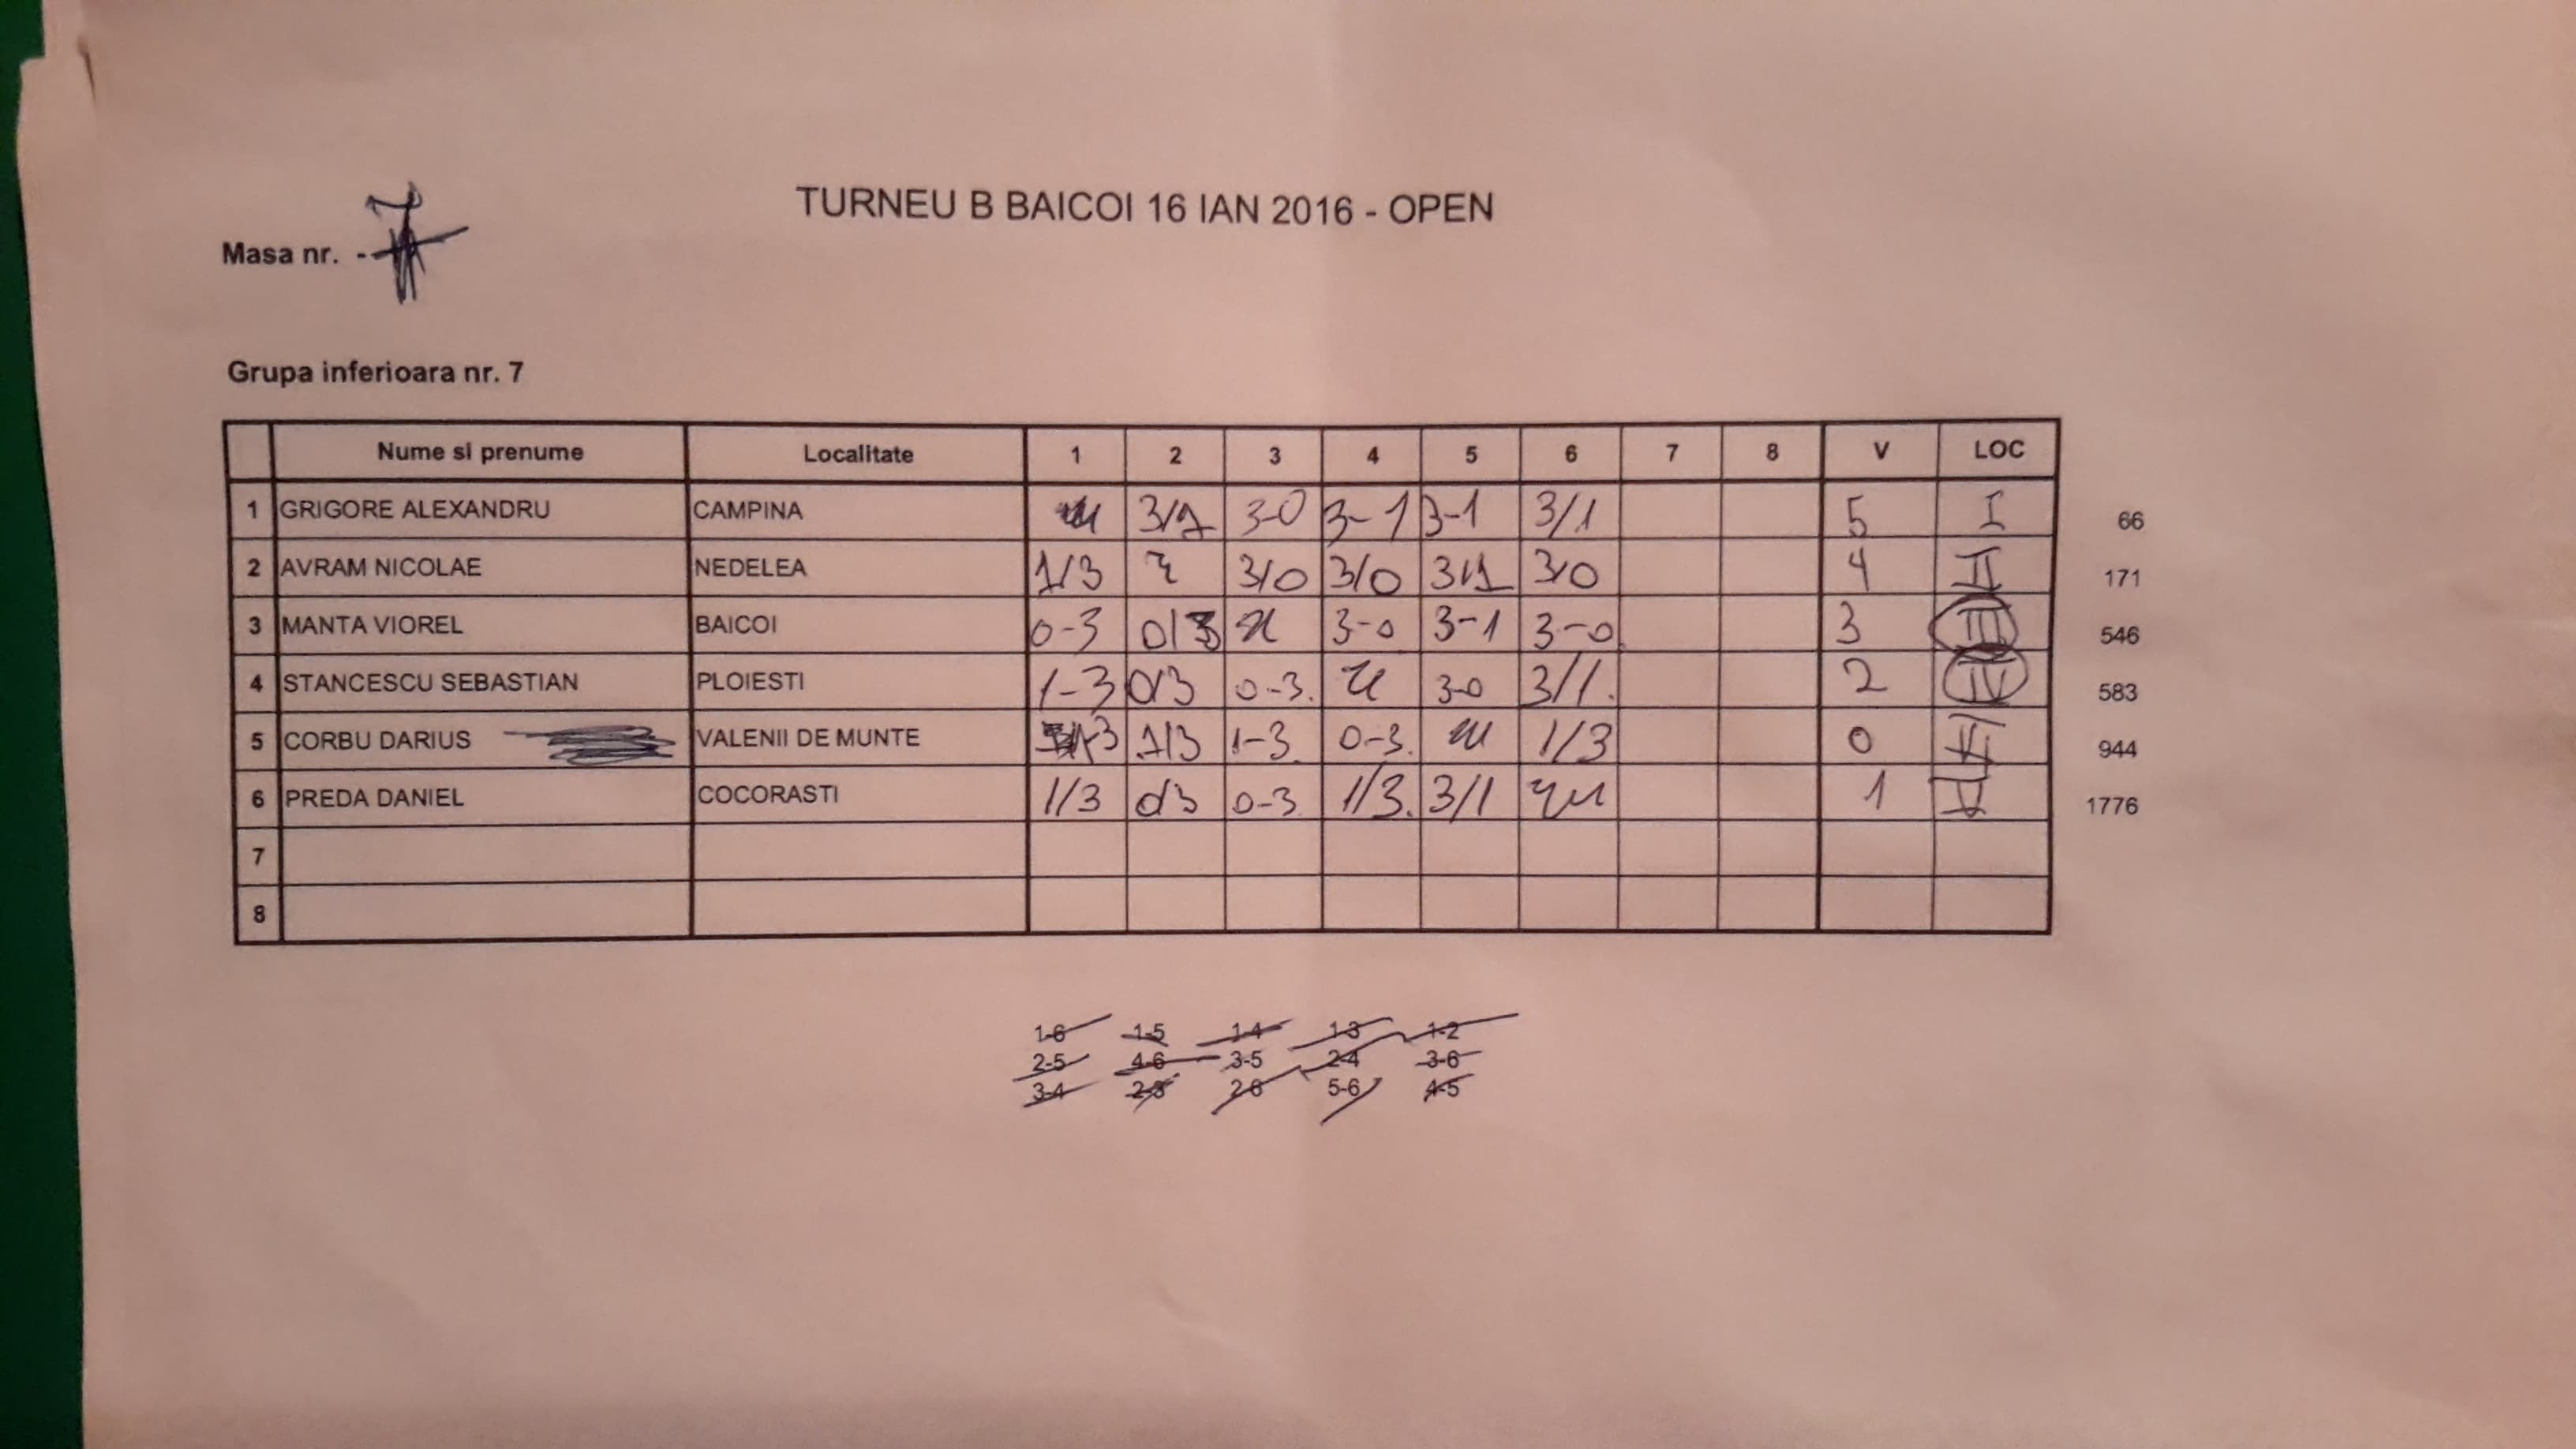 TURNEU B BAICOI 16 IAN 2016 - OPEN
Masa nr. - 7
Grupa inferioara nr. 7
Nume si prenume Localitate 1 2 3 4 5 6 7 8 V LOC
1 GRIGORE ALEXANDRU CAMPINA 3/1 3-0 3-1 3-1 3/1 5 I 66
2 AVRAM NICOLAE NEDELEA 1/3 3/0 3/0 3/1 3/0 4 II 171
3 MANTA VIOREL BAICOI 0-3 0/3 3-0 3-1 3-0 3 III 546
4 STANCESCU SEBASTIAN PLOIESTI 1-3 0/3 0-3. 3-0 3/1. 2 IV 583
5 CORBU DARIUS VALENII DE MUNTE 1-3 1/3 1-3 0-3. 1/3 0 VI 944
6 PREDA DANIEL COCORASTI 1/3 0/3 0-3 1/3. 3/1 1 V 1776
7
8
1-6 1-5 1-4 1-3 1-2
2-5 4-6 3-5 2-4 3-6
3-4 2-3 2-6 5-6 4-5